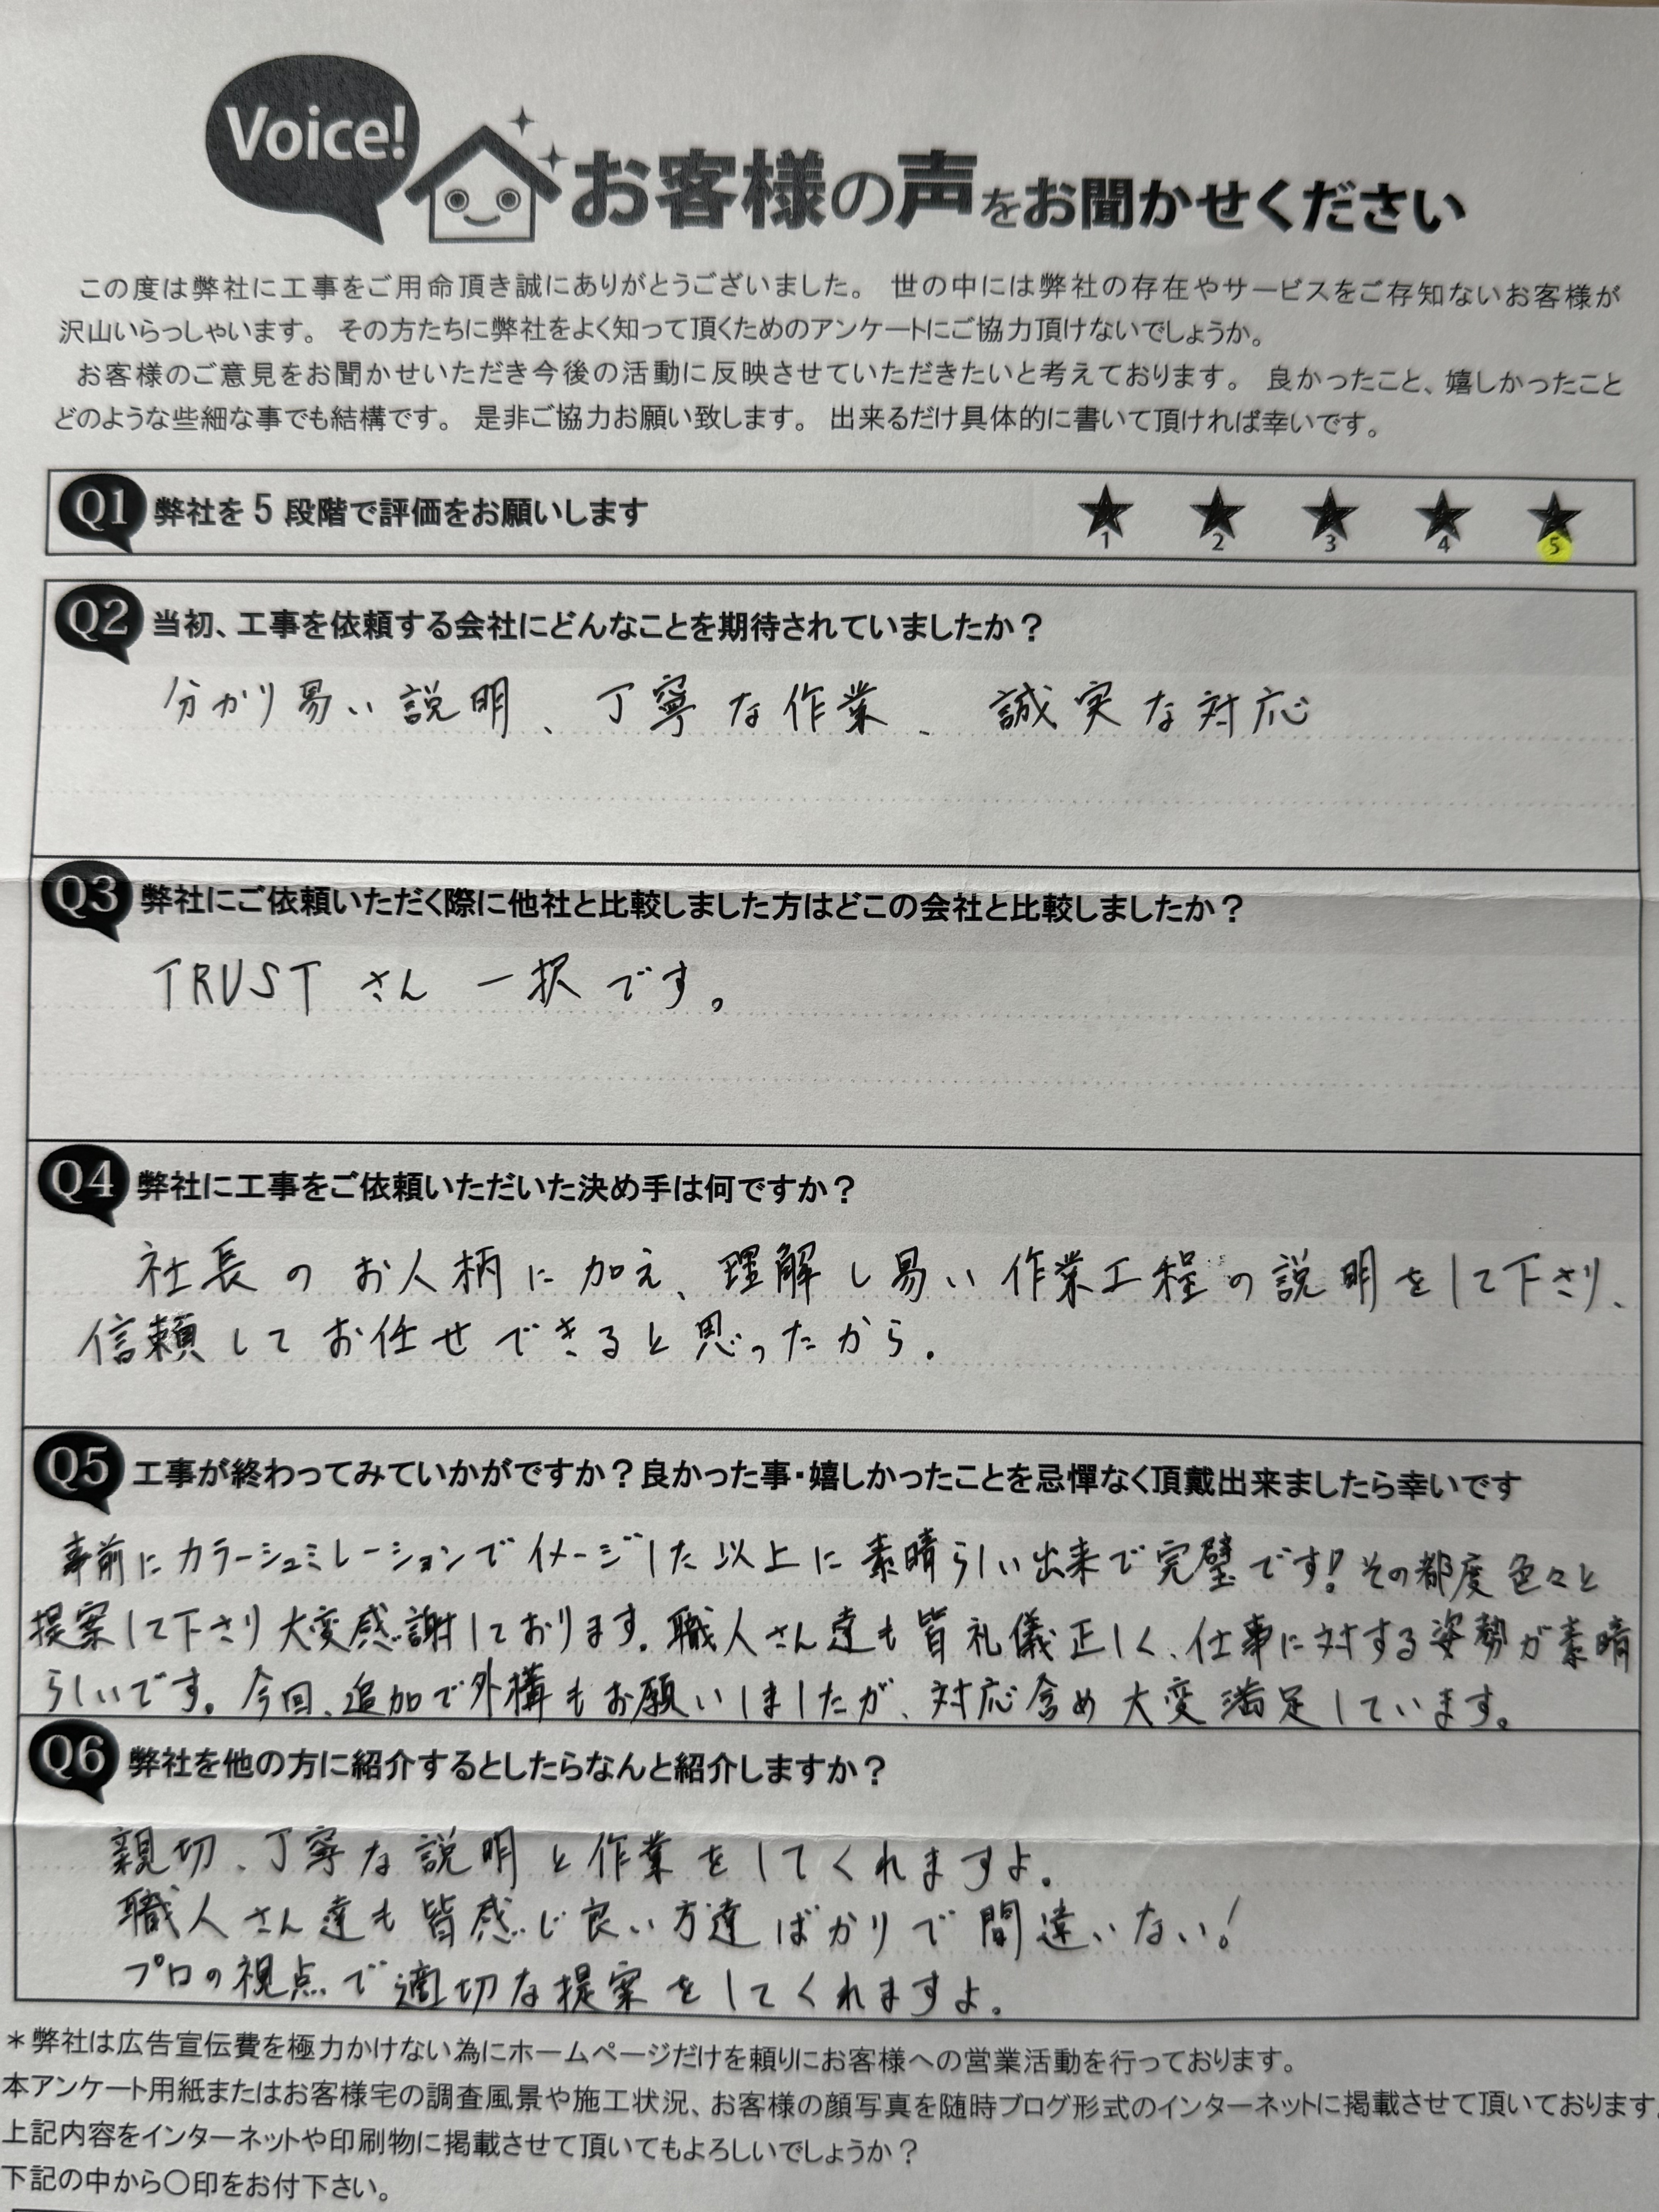 Voice!
お客様の声をお聞かせください
この度は弊社に工事をご用命頂き誠にありがとうございました。 世の中には弊社の存在やサービスをご存知ないお客様が
沢山いらっしゃいます。 その方たちに弊社をよく知って頂くためのアンケートにご協力頂けないでしょうか。
お客様のご意見をお聞かせいただき今後の活動に反映させていただきたいと考えております。 良かったこと、嬉しかったこと
どのような些細な事でも結構です。 是非ご協力お願い致します。 出来るだけ具体的に書いて頂ければ幸いです。
Q1 弊社を5段階で評価をお願いします ★ ★ ★ ★ ★
1 2 3 4 5
Q2 当初、工事を依頼する会社にどんなことを期待されていましたか？
分かり易い説明、丁寧な作業、誠実な対応
Q3 弊社にご依頼いただく際に他社と比較しました方はどこの会社と比較しましたか？
TRUSTさん一択です。
Q4 弊社に工事をご依頼いただいた決め手は何ですか？
社長のお人柄に加え、理解し易い作業工程の説明をして下さり、
信頼してお任せできると思ったから。
Q5 工事が終わってみていかがですか？良かった事・嬉しかったことを忌憚なく頂戴出来ましたら幸いです
事前にカラーシュミレーションでイメージした以上に素晴らしい出来で完璧です!その都度色々と
提案して下さり大変感謝しております。職人さん達も皆礼儀正しく、仕事に対する姿勢が素晴
らしいです。今回、追加で外構もお願いしましたが、対応含め大変満足しています。
Q6 弊社を他の方に紹介するとしたらなんと紹介しますか？
親切、丁寧な説明と作業をしてくれますよ。
職人さん達も皆感じ良い方達ばかりで間違いない!
プロの視点で適切な提案をしてくれますよ。
＊弊社は広告宣伝費を極力かけない為にホームページだけを頼りにお客様への営業活動を行っております。
本アンケート用紙またはお客様宅の調査風景や施工状況、お客様の顔写真を随時ブログ形式のインターネットに掲載させて頂いております。
上記内容をインターネットや印刷物に掲載させて頂いてもよろしいでしょうか？
下記の中から〇印をお付下さい。